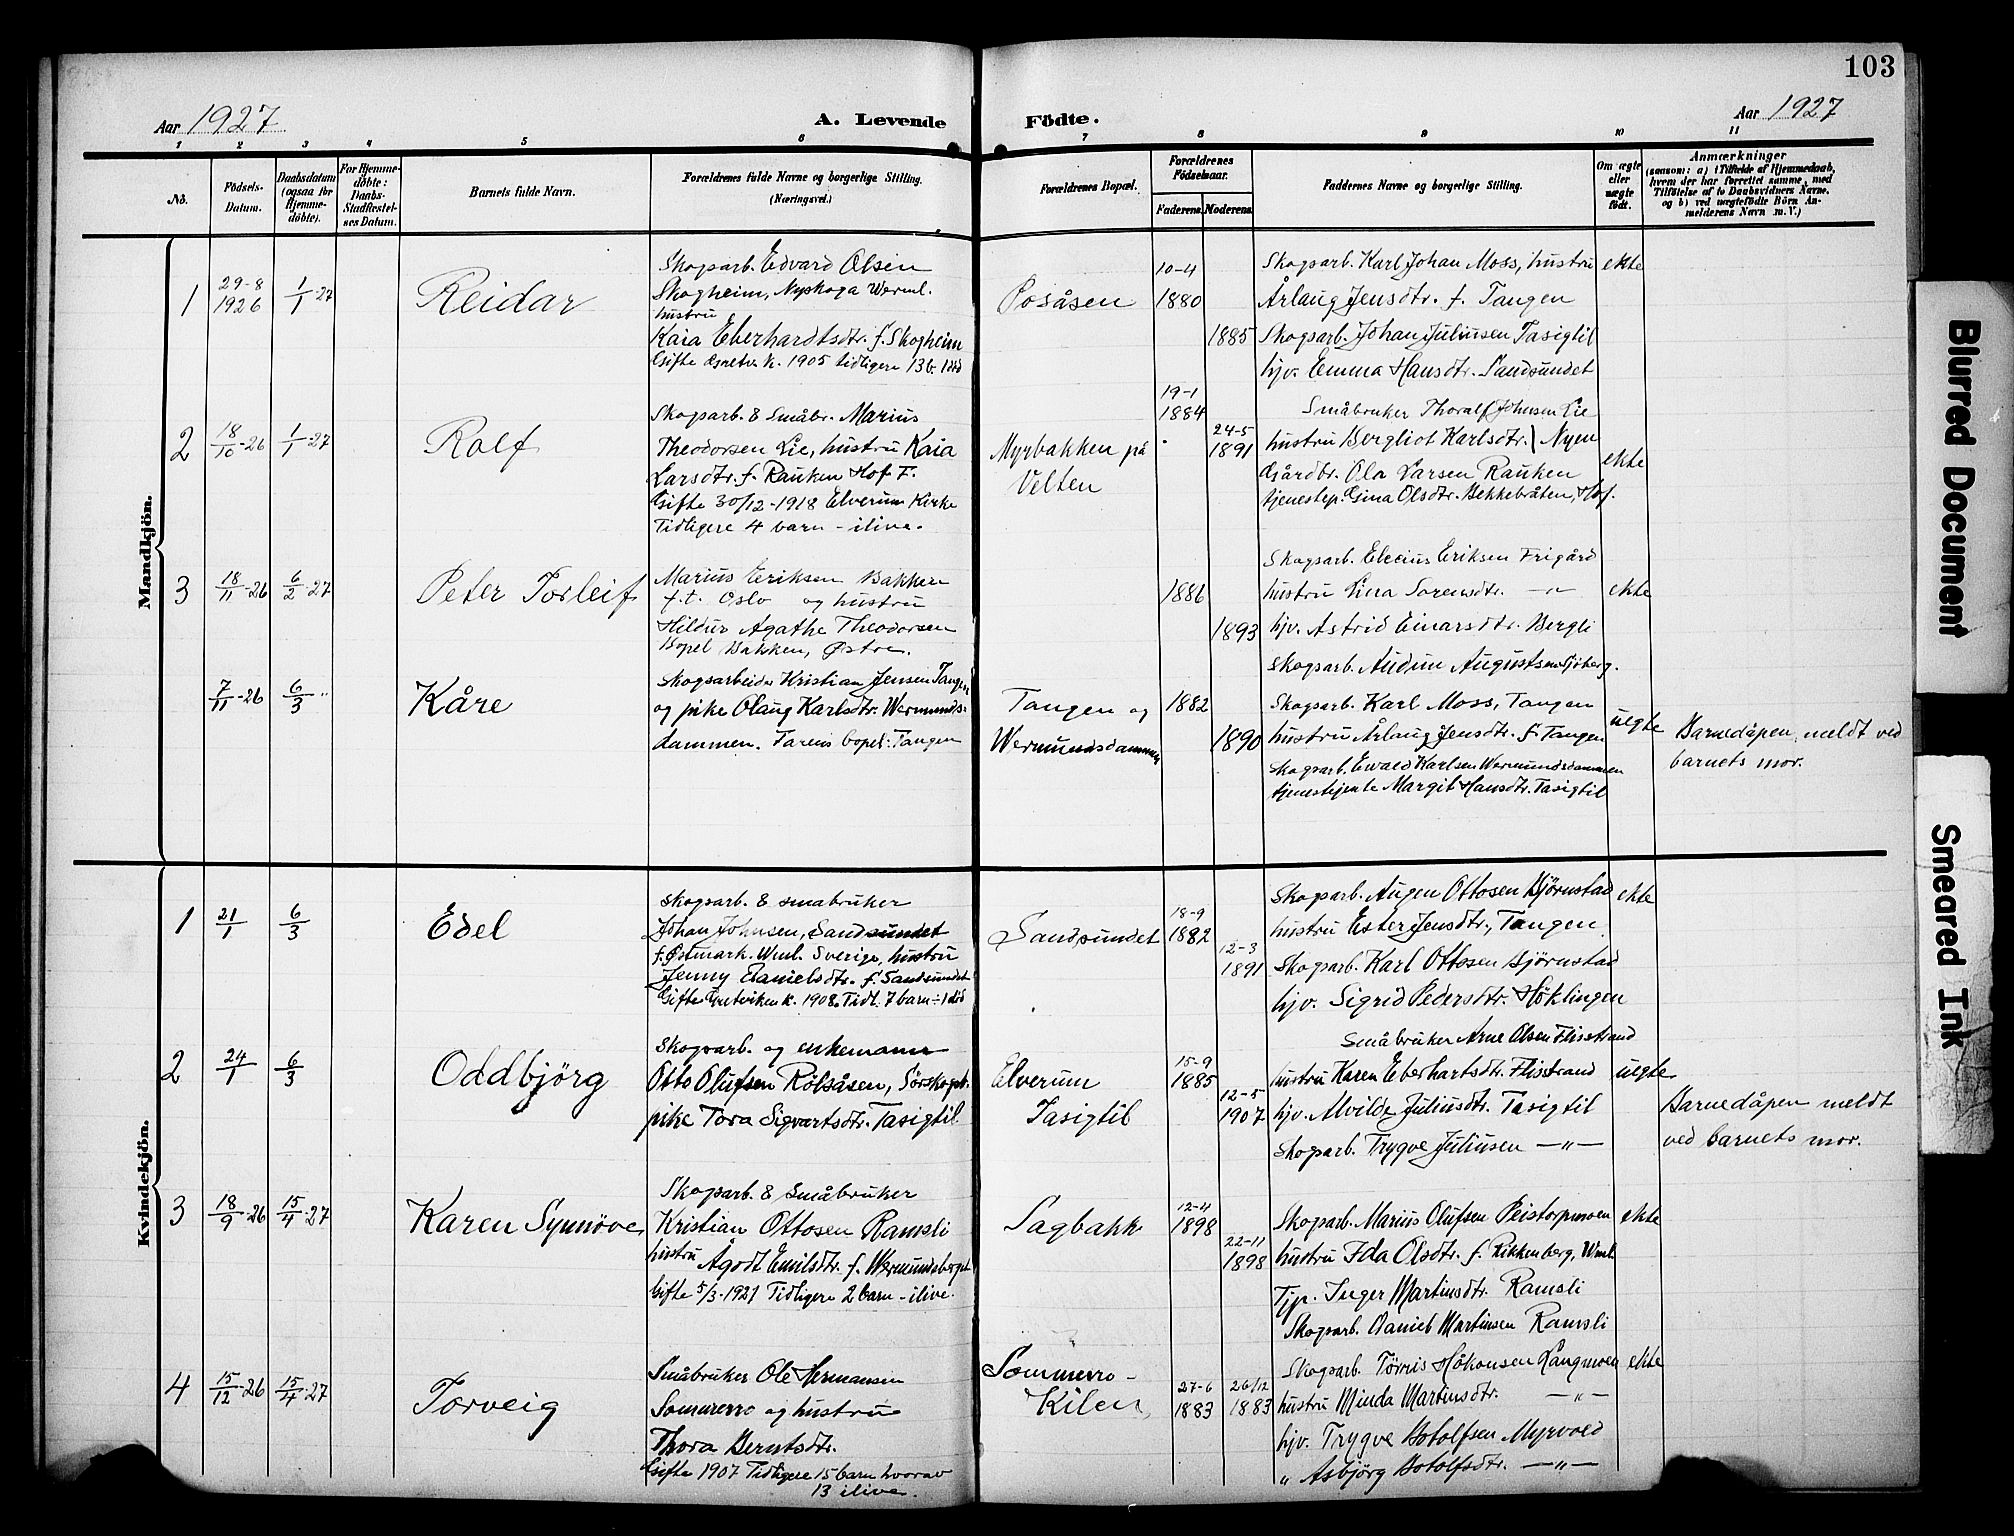 103
Aar 1927
A. Levende Födte.
Aar 1927
1 2 3 4 5 6 7 8 9 10 11
No.
Födsels-Datum.
Daabsdatum (ogsaa for Hjemme-döbte).
For Hjemme-döbte: Daabs-Stadfæstel-ses Datum.
Barnets fulde Navn.
Forældrenes fulde Navne og borgerlige Stilling.
(Næringsvei.)
Forældrenes Bopæl.
Forældrenes Födselsaar.
Faderens. Moderens.
Faddernes Navne og borgerlige Stilling.
Om ægte eller uægte födt.
Anmærkninger
(saasom: a) i Tilfælde af Hjemmedaab,
hvem der har forrettet samme, med
Tilföielse af to Daabsvidners Navne,
og b) ved uægtefödte Börn An-
melderens Navn m. V.)
Mandkjön.
1
29-8
1926
1/1-27
Reidar
Skogsarb. Edvard Olsen
Skogheim, Nyskoga Werml.
hustru
Kaia Eberhardtsdtr. f. Skogheim
Gifte K. 1905 tidligere 13 b. 1 död
Posåsen
10-4
1880
1885
Skogsarb. Karl Johan Moss, hustru
Årlaug Jensdtr. f. Tangen
Skogsarb. Johan Juliusen Tasigtil
hjv. Emma Hansdtr. Sandsundet
ekte
2
18/10-26
1/1-27
Rolf
Skogsarb. & Småbr. Marius
Theodorsen Lie, hustru Kaia
Larsdtr. f. Rauken Hof F.
Gifte 30/12-1918 Elverum Kirke
Tidligere 4 barn - ilive.
Myrbakken på
Velten
19-1
1884
24-5
1891
Småbruker Thoralf Johnsen Lie
hustru Bergliot Karlsdtr. Nyen
Gårdbr. Ola Larsen Rauken
tjenestep. Gina Olsdtr. Bekkebråten, Hof.
ekte
3
18/11-26
6/2-27
Peter Torleif
Marius Eriksen Bakken
f.t. Oslo og hustru
Hildur Agathe Theodorsen
Bopel Bakken, Østre.
1886
1893
Skogsarb. Elecius Eriksen Frigård
hustru Lina Sorensdtr. —"—
hjv. Astrid Einarsdtr. Bergli
skogsarb. Audun Augustsen Sjöberg.
ekte
7/11-26
6/3 "
Kåre
Skogsarbeider Kristian Jensen Tangen
og pike Olaug Karlsdtr. Wermunds-
dammen. Farens bopel: Tangen
Tangen og
Wermundsdammen
1882
1890
Skogsarb. Karl Moss, Tangen
hustru Årlaug Jensdtr. f. Tangen
Skogsarb. Ewald Karlsen Wermundsdammen
tjenestejente Margit Hansdtr. Tasigtil
uegte
Barnedåpen meldt ved
barnets mor.
Kvindekjön.
1
21/1
6/3
Edel
Skogsarb. & småbruker
Johan Johnsen, Sandsundet
f. Østmark. Wml. Sverige, hustru
Jenny Danielsdtr. f. Sandsundet
Gifte K. 1908. Tidl. 7 barn ÷ 1 död
Sandsundet
18-9
1882
12-3
1891
Skogsarb. Augen Ottosen Bjørnstad
hustru Ester Jensdtr., Tangen
Skogsarb. Karl Ottosen Bjørnstad
hjv. Sigrid Pedersdtr. Höklingen
ekte
2
24/1
6/3
Oddbjörg
Skogsarb. og enkemann
Otto Olufsen Rölsåsen, Sørskogb.
pike Tora Sigvartsdtr. Tasigtil
Elverum
Tasigtil
15-9
1885
12-5
1907
Småbruker Arne Olsen Flisstrand
hustru Karen Eberhartsdtr. Flisstrand
hjv. Alvilde Juliusdtr. Tasigtil
Skogsarb. Trygve Juliusen —"—
uegte
Barnedåpen meldt
ved barnets mor.
3
18/9-26
15/4-27
Karen Synnöve
Skogsarb. & Småbruker
Kristian Ottosen Ramsli
hustru Ågodt Emilsdtr. f. Wermundsberget
Gifte 5/3-1921 Tidligere 2 barn - ilive.
Sagbakk
12-4
1898
22-11
1898
Skogsarb. Marius Olufsen Peistorpmoen
hustru Ida Olsdtr. f. Rikkenberg, Wml.
Tjp. Inger Martinsdtr. Ramsli
Skogsarb. Daniel Martinsen Ramsli
ekte
4
15/12-26
15/4-27
Torveig
Småbruker Ole Hermansen
Sommerro og hustru
Thora Berntsdtr.
Gifte 1907 Tidligere 15 barn hvorav
13 ilive.
Sommerro-
Kilen
27-6
1883
26/12
1883
Skogsarb. Törris Håkonsen Langmoen
hustru Minda Martinsdtr. —"—
hjv. Trygve Botolfsen Myrvold
" Asbjörg Botolfsdtr. —"—
ekte
Blurred Document
Smeared Ink